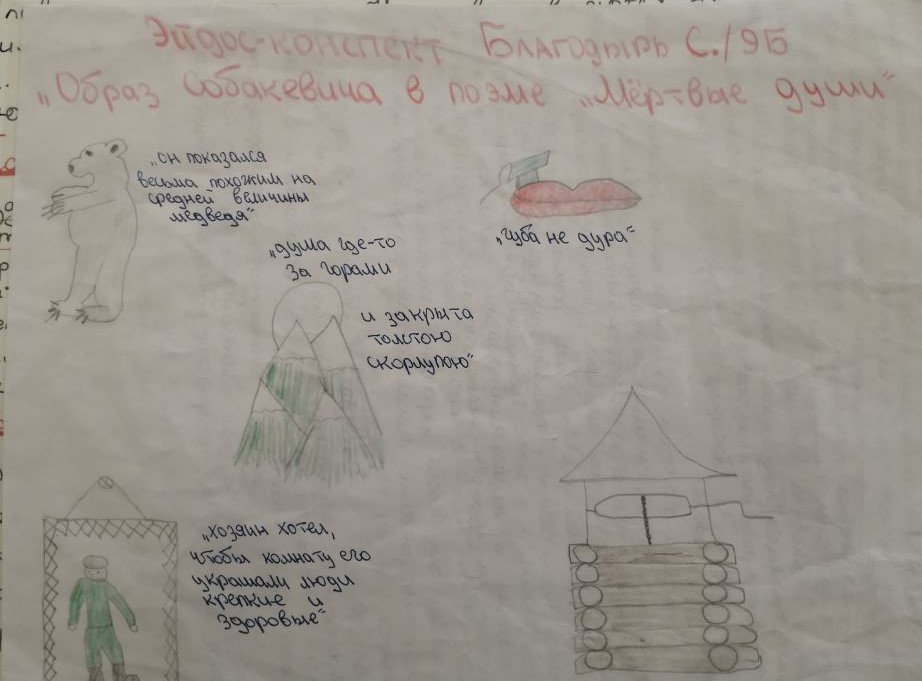 Эйдос-конспект Благодырь С./9Б
„Образ Собакевича в поэме „Мёртвые души“
„он показался
весьма похожим на
средней величины
медведя“
„губа не дура“
„душа где-то
за горами
и закрыта
толстою
скорлупою“
„хозяин хотел,
чтобы комнату его
украшали люди
крепкие и
здоровые“